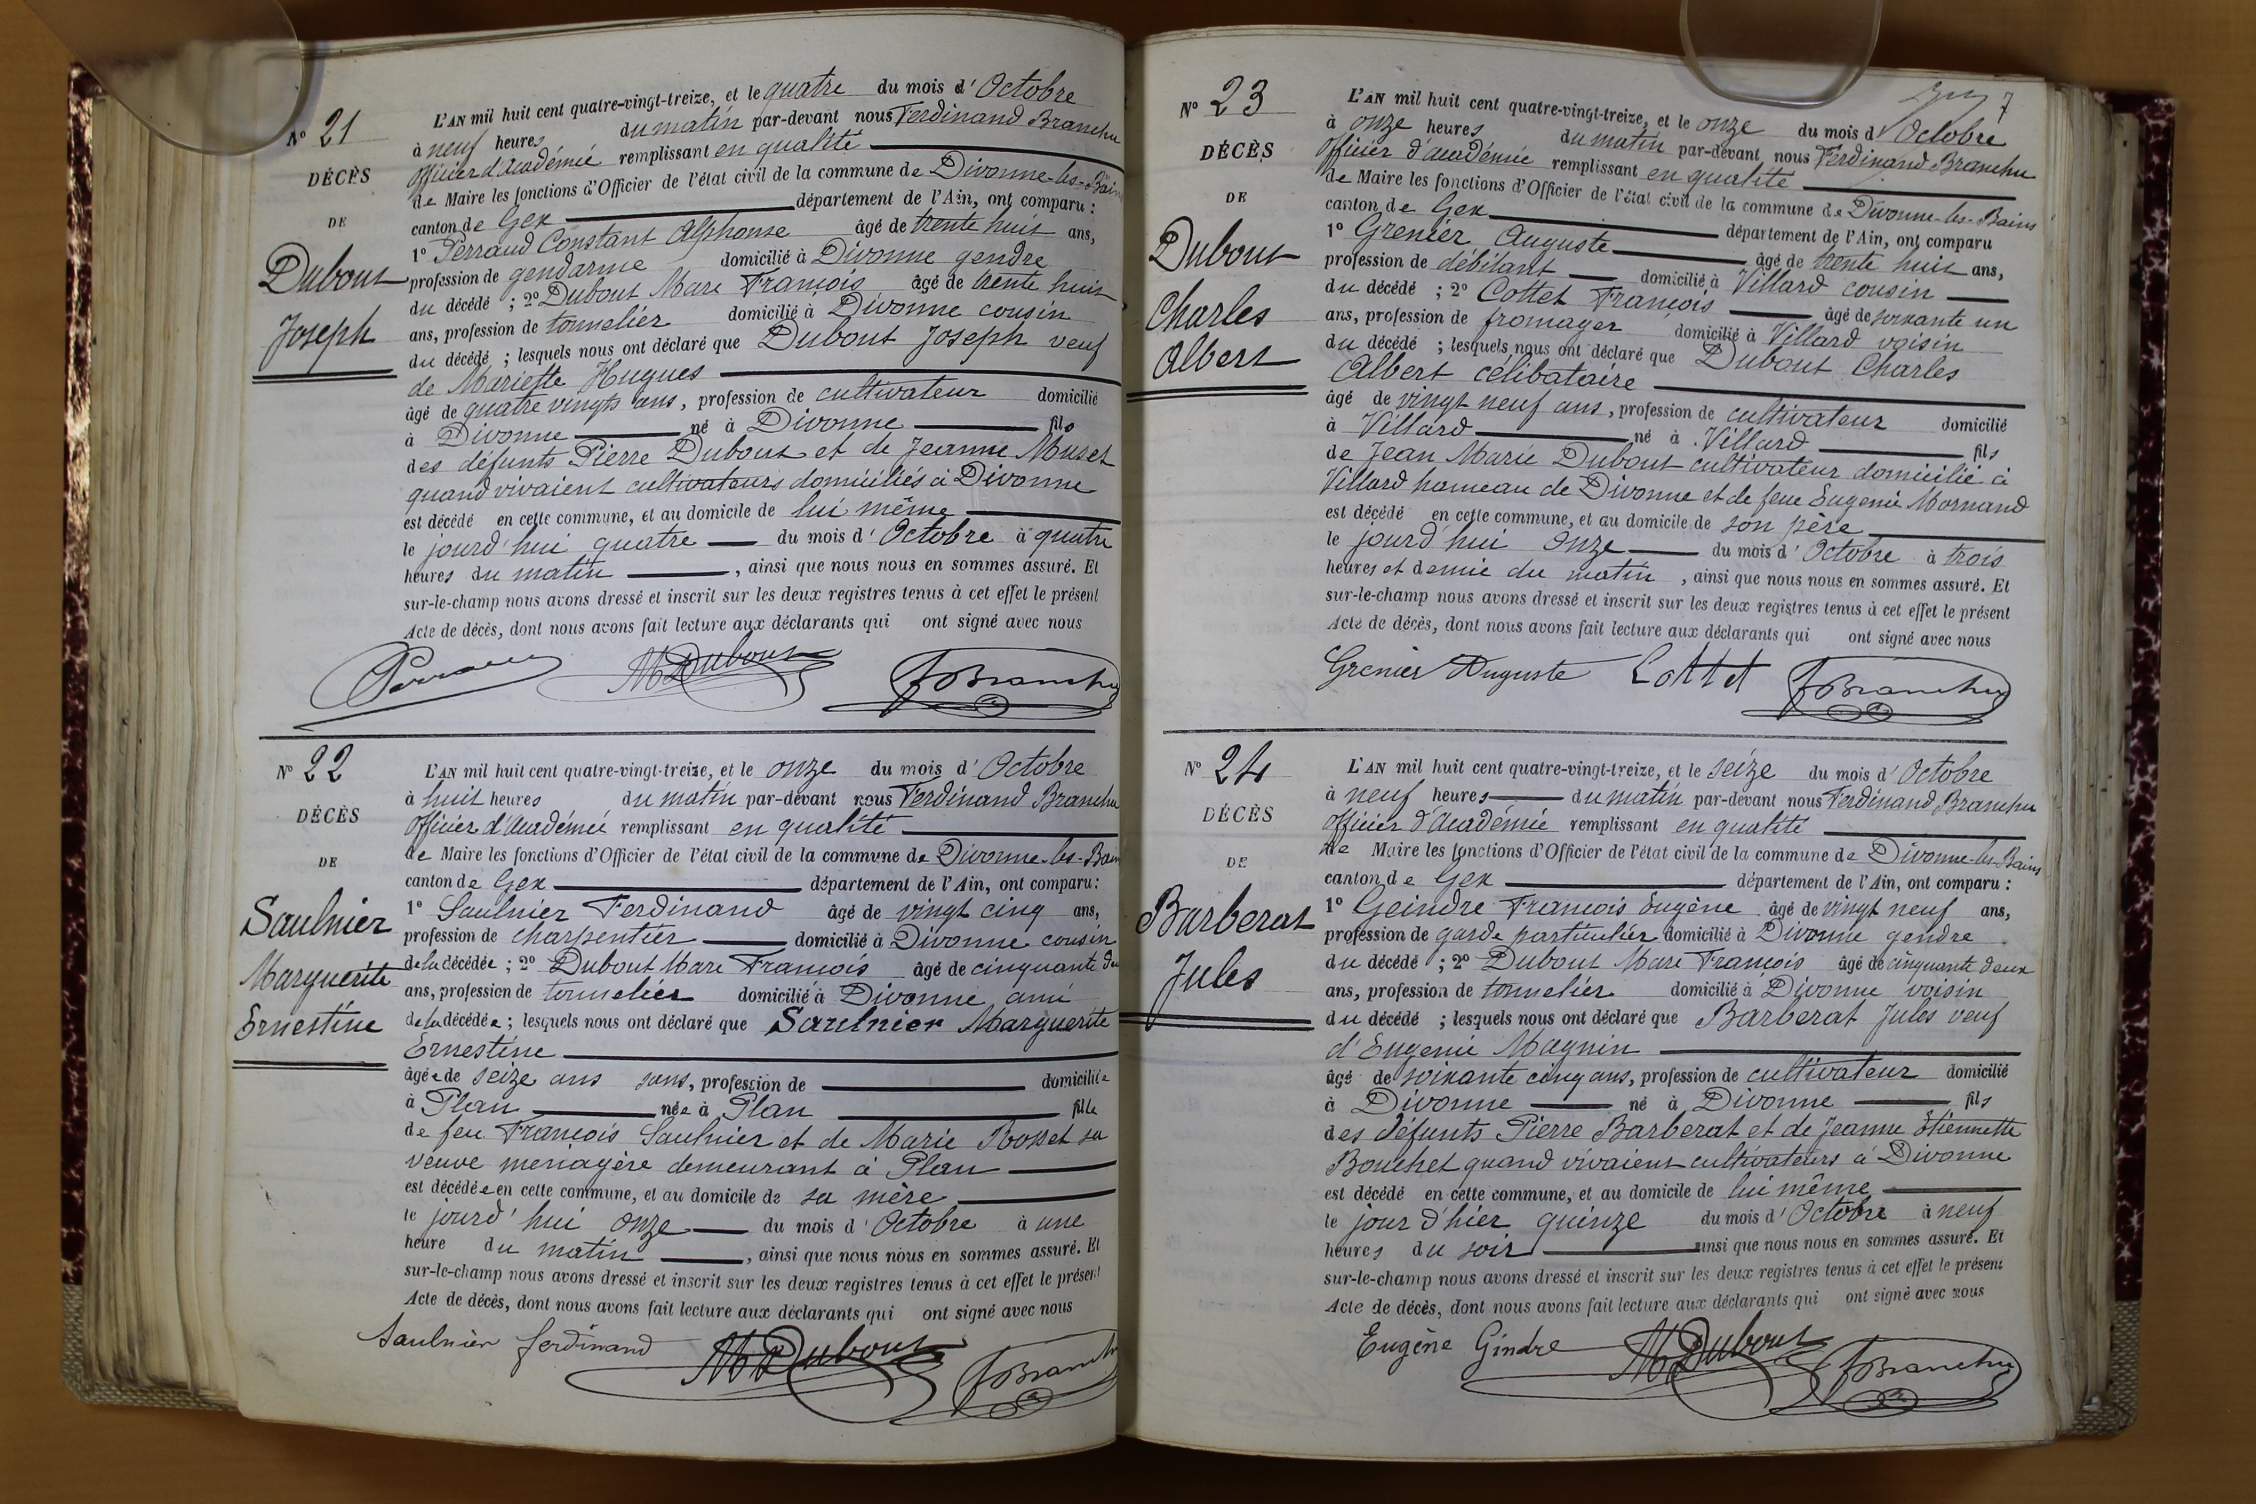 N° 21
DÉCÈS
DE
Dubout
Joseph
L'AN mil huit cent quatre-vingt-treize, et le quatre du mois d'Octobre
à neuf heures du matin par-devant nous Ferdinand Branchu
officier d'Académie remplissant en qualité
de Maire les fonctions d'Officier de l'état civil de la commune de Divonne-les-Bains
canton de Gex département de l'Ain, ont comparu :
1° Perraud Constant Alphonse âgé de trente huit ans,
profession de gendarme domicilié à Divonne gendre
du décédé ; 2° Dubout Marc François âgé de trente huit
ans, profession de tonnelier domicilié à Divonne cousin
du décédé ; lesquels nous ont déclaré que Dubout Joseph veuf
de Mariette Hugues
âgé de quatre vingts ans, profession de cultivateur domicilié
à Divonne né à Divonne fils
des défunts Pierre Dubout et de Jeanne Muset
quand vivaient cultivateurs domiciliés à Divonne
est décédé en cette commune, et au domicile de lui même
le jourd'hui quatre du mois d'Octobre à quatre
heures du matin, ainsi que nous nous en sommes assuré. Et
sur-le-champ nous avons dressé et inscrit sur les deux registres tenus à cet effet le présent
Acte de décès, dont nous avons fait lecture aux déclarants qui ont signé avec nous
M Dubout FBranchu
N° 22
DÉCÈS
DE
Saulnier
Marguerite
Ernestine
L'AN mil huit cent quatre-vingt-treize, et le onze du mois d'Octobre
à huit heures du matin par-devant nous Ferdinand Branchu
officier d'Académie remplissant en qualité
de Maire les fonctions d'Officier de l'état civil de la commune de Divonne-les-Bains
canton de Gex département de l'Ain, ont comparu :
1° Saulnier Ferdinand âgé de vingt cinq ans,
profession de charpentier domicilié à Divonne cousin
de la décédée ; 2° Dubout Marc François âgé de cinquante
ans, profession de tonnelier domicilié à Divonne ami
de la décédée ; lesquels nous ont déclaré que Saulnier Marguerite
Ernestine
âgée de seize ans sans, profession de domiciliée
à Plan née à Plan fille
de feu François Saulnier et de Marie Rosset sa
veuve ménagère demeurant à Plan
est décédée en cette commune, et au domicile de sa mère
le jourd'hui onze du mois d'Octobre à une
heure du matin, ainsi que nous nous en sommes assuré. Et
sur-le-champ nous avons dressé et inscrit sur les deux registres tenus à cet effet le présent
Acte de décès, dont nous avons fait lecture aux déclarants qui ont signé avec nous
Saulnier ferdinand M Dubout FBranchu
7
N° 23
DÉCÈS
DE
Dubout
Charles
Albert
L'AN mil huit cent quatre-vingt-treize, et le onze du mois d'Octobre
à onze heures du matin par-devant nous Ferdinand Branchu
officier d'académie remplissant en qualité
de Maire les fonctions d'Officier de l'état civil de la commune de Divonne-les-Bains
canton de Gex département de l'Ain, ont comparu
1° Grenier Auguste âgé de trente huit ans,
profession de débitant domicilié à Villard cousin
du décédé ; 2° Cottet François âgé de soixante un
ans, profession de fromager domicilié à Villard voisin
du décédé ; lesquels nous ont déclaré que Dubout Charles
Albert célibataire
âgé de vingt neuf ans, profession de cultivateur domicilié
à Villard né à Villard fils
de Jean Marie Dubout cultivateur domicilié à
Villard hameau de Divonne et de feue Eugenie Mornand
est décédé en cette commune, et au domicile de son père
le jourd'hui onze du mois d'Octobre à trois
heures et demie du matin, ainsi que nous nous en sommes assuré. Et
sur-le-champ nous avons dressé et inscrit sur les deux registres tenus à cet effet le présent
Acte de décès, dont nous avons fait lecture aux déclarants qui ont signé avec nous
Grenier Auguste Cottet FBranchu
N° 24
DÉCÈS
DE
Barberat
Jules
L'AN mil huit cent quatre-vingt-treize, et le seize du mois d'Octobre
à neuf heures du matin par-devant nous Ferdinand Branchu
officier d'académie remplissant en qualité
de Maire les fonctions d'Officier de l'état civil de la commune de Divonne-les-Bains
canton de Gex département de l'Ain, ont comparu :
1° Geindre François Eugène âgé de vingt neuf ans,
profession de garde particulier domicilié à Divonne gendre
du décédé ; 2° Dubout Marc François âgé de cinquante deux
ans, profession de tonnelier domicilié à Divonne voisin
du décédé ; lesquels nous ont déclaré que Barberat Jules veuf
d'Eugenie Magnin
âgé de soixante cinq ans, profession de cultivateur domicilié
à Divonne né à Divonne fils
des défunts Pierre Barberat et de Jeanne Etiennette
Bouchet quand vivaient cultivateurs à Divonne
est décédé en cette commune, et au domicile de lui même
le jour d'hier quinze du mois d'Octobre à neuf
heures du soir ainsi que nous nous en sommes assuré. Et
sur-le-champ nous avons dressé et inscrit sur les deux registres tenus à cet effet le présent
Acte de décès, dont nous avons fait lecture aux déclarants qui ont signé avec nous
Eugène Gindre M Dubout FBranchu